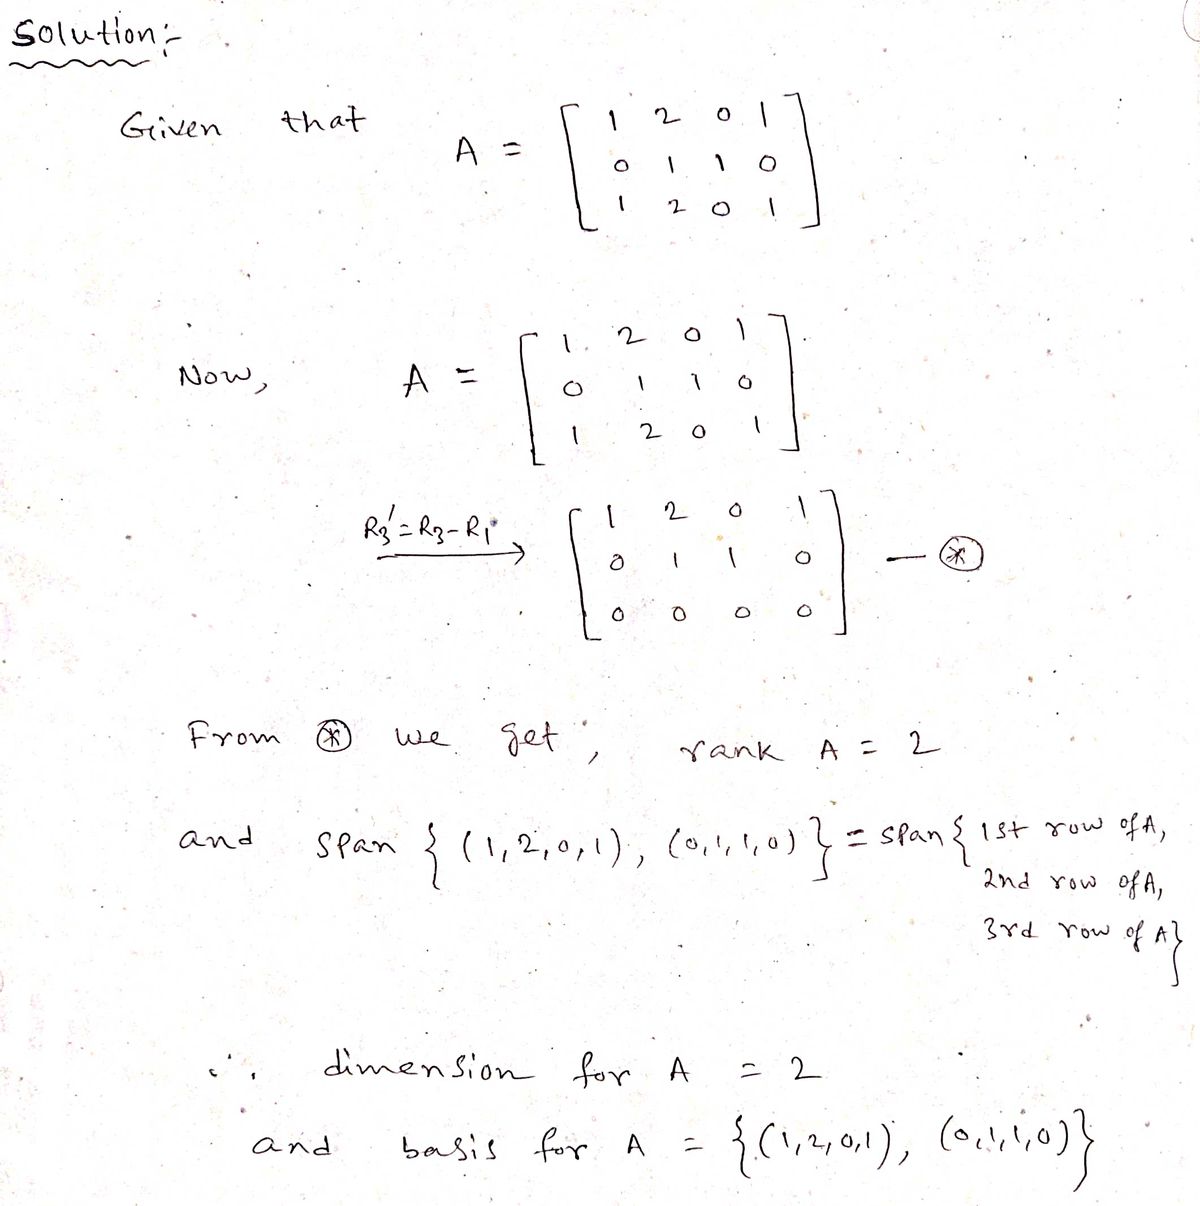 Solution:-
Given that
A = [ 1 2 0 1
0 1 1 0
1 2 0 1 ]
Now, A = [ 1 2 0 1
0 1 1 0
1 2 0 1 ]
R3' = R3 - R1 → [ 1 2 0 1
0 1 1 0
0 0 0 0 ] — ⊛
From ⊛ we get, rank A = 2
and span { (1,2,0,1), (0,1,1,0) } = span { 1st row of A,
2nd row of A,
3rd row of A }
∴ dimension for A = 2
and basis for A = { (1,2,0,1), (0,1,1,0) }